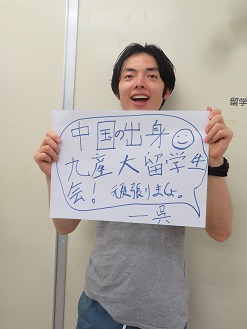 留学
中国の出身
九産大留学生
会！頑張りましょ。
一呉